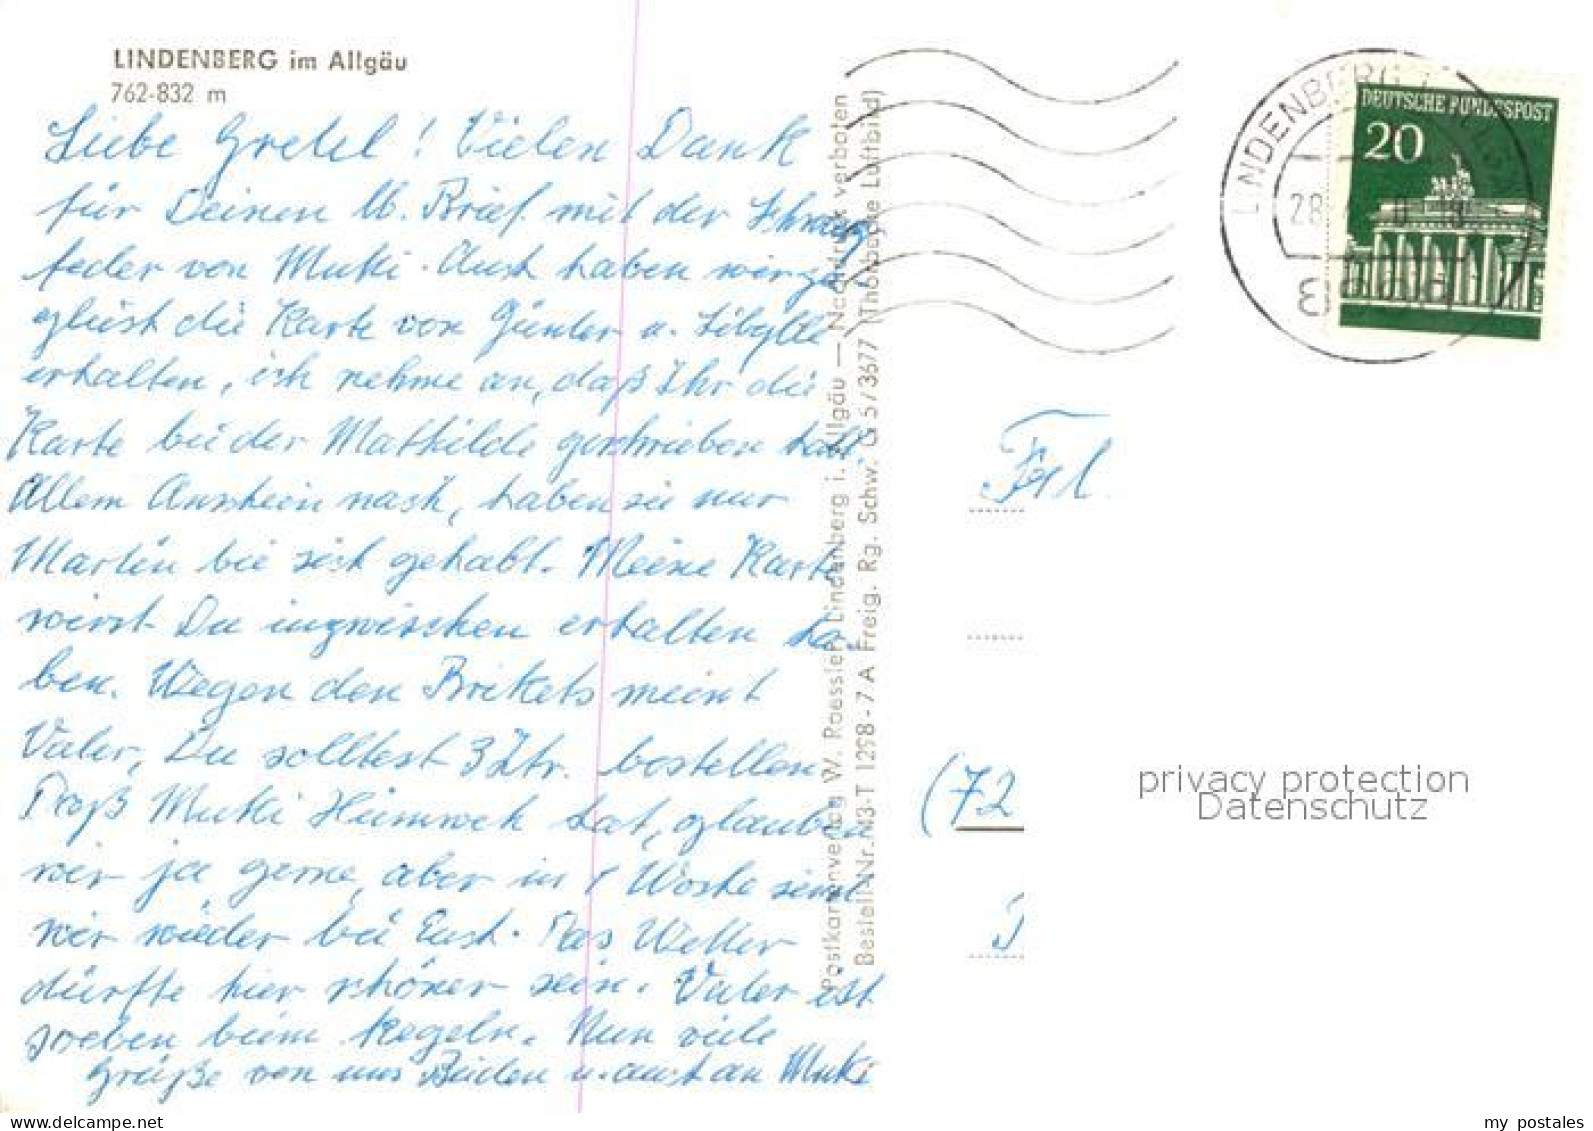 LINDENBERG im Allgäu
762-832 m
Liebe Gretel! Vielen Dank
für Deinen lb. Brief mit der Schwung
feder von Mucki. Auch haben wir
die Karte von Günter u. Sibylle
erhalten, ich nehme an, daß Ihr die
Karte bei der Mathilde geschrieben habt.
Allem Anschein nach, haben sie nur
Martin bei sich gehabt. Meine Karte
wirst Du inzwischen erhalten ha-
ben. Wegen den Brikets meint
Vater, Du solltest 3 Ztr. bestellen.
Daß Mucki Heimweh hat, glauben
wir ja gerne, aber in 1 Woche sind
wir wieder bei Euch. Das Wetter
dürfte hier schöner sein. Vater ist
soeben beim Kegeln. Nun viele
Grüße von uns Beiden u. auch an Mucki
Postkartenverlag W. Roessler, Lindenberg i. Allgäu — Nachdruck verboten
Bestell-Nr. M3-T 1298-7 A Freig. Rg. Schw. G 5/3677 (Thorbecke Luftbild)
LINDENBERG
DEUTSCHE BUNDESPOST
20
Frl.
(72
privacy protection
Datenschutz
www.delcampe.net
my_postales